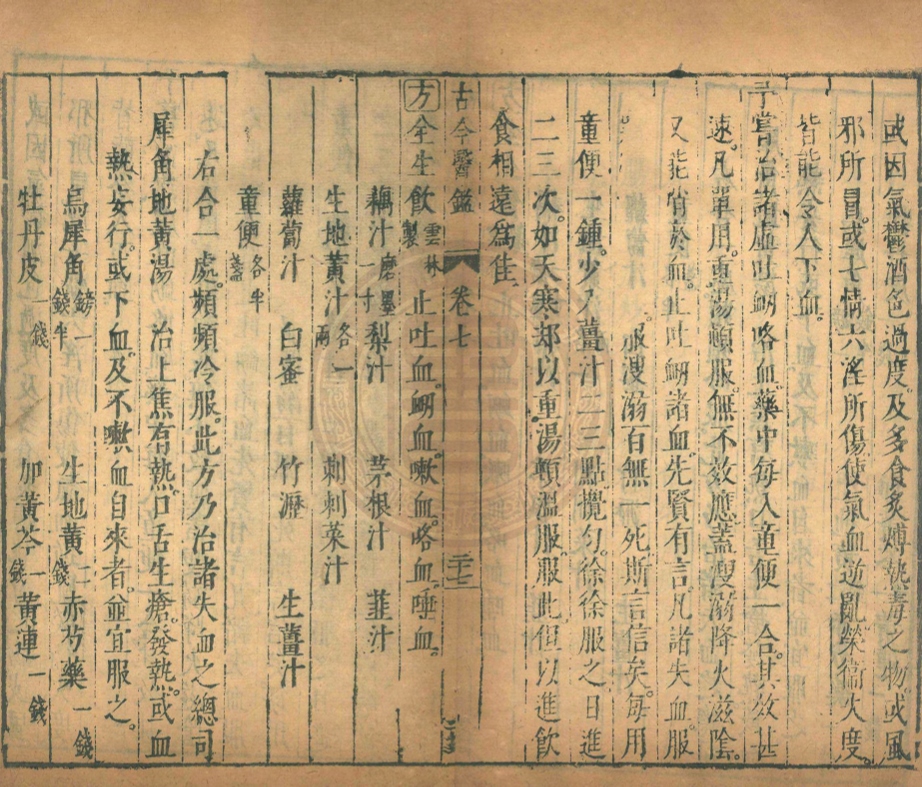 或因氣鬱酒色過度及多食炙煿熱毒之物或風
邪所冒或七情六淫所傷使氣血逆亂榮衛失度
皆能令人下血
予嘗治諸虛吐衂咯血藥中每入童便一合其效甚
速凡單用重湯頓服無不效應蓋溲溺降火滋陰
又能消於血止吐衂諸血先賢有言凡諸失血服
服溲溺百無一死斯言信矣每用
童便一鍾少入薑汁二三點攪勻徐徐服之日進
二三次如天寒却以重湯頓溫服服此但以進飲
食相遠為佳
古今醫鑑 卷七 二十七
方 全生飲 雲林製 止吐血衂血嗽血咯血唾血
藕汁 磨墨一寸 梨汁 茅根汁 韮汁
生地黃汁 各一兩 刺刺菜汁
蘿蔔汁 白蜜 竹瀝 生薑汁
童便 各半盞
右合一處頻頻冷服此方乃治諸失血之總司
犀角地黃湯 治上焦有熱口舌生瘡發熱或血
熱妄行或下血及不嗽血自來者並宜服之
烏犀角 鎊一錢半 生地黃 二錢 赤芍藥 一錢
牡丹皮 一錢 加黃芩 一錢 黃連 一錢